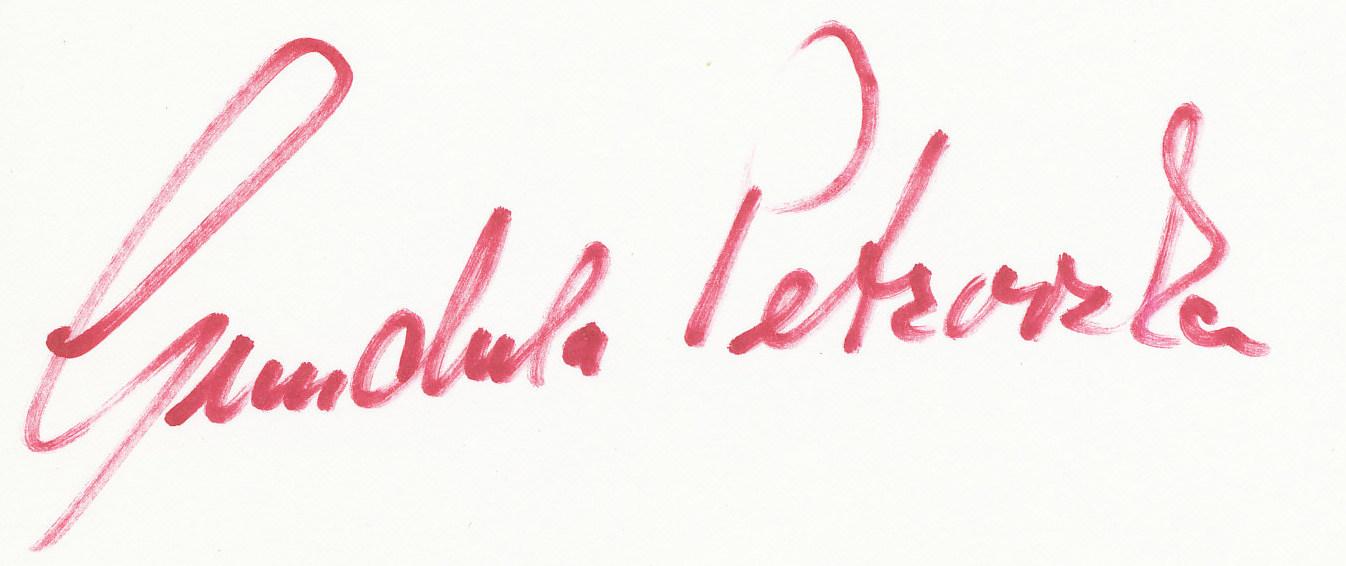 Gundula Petrovska